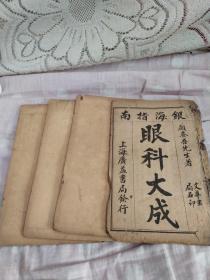 銀海指南
顧養吾先生著
眼科大成
上海廣益書局發行
局石印